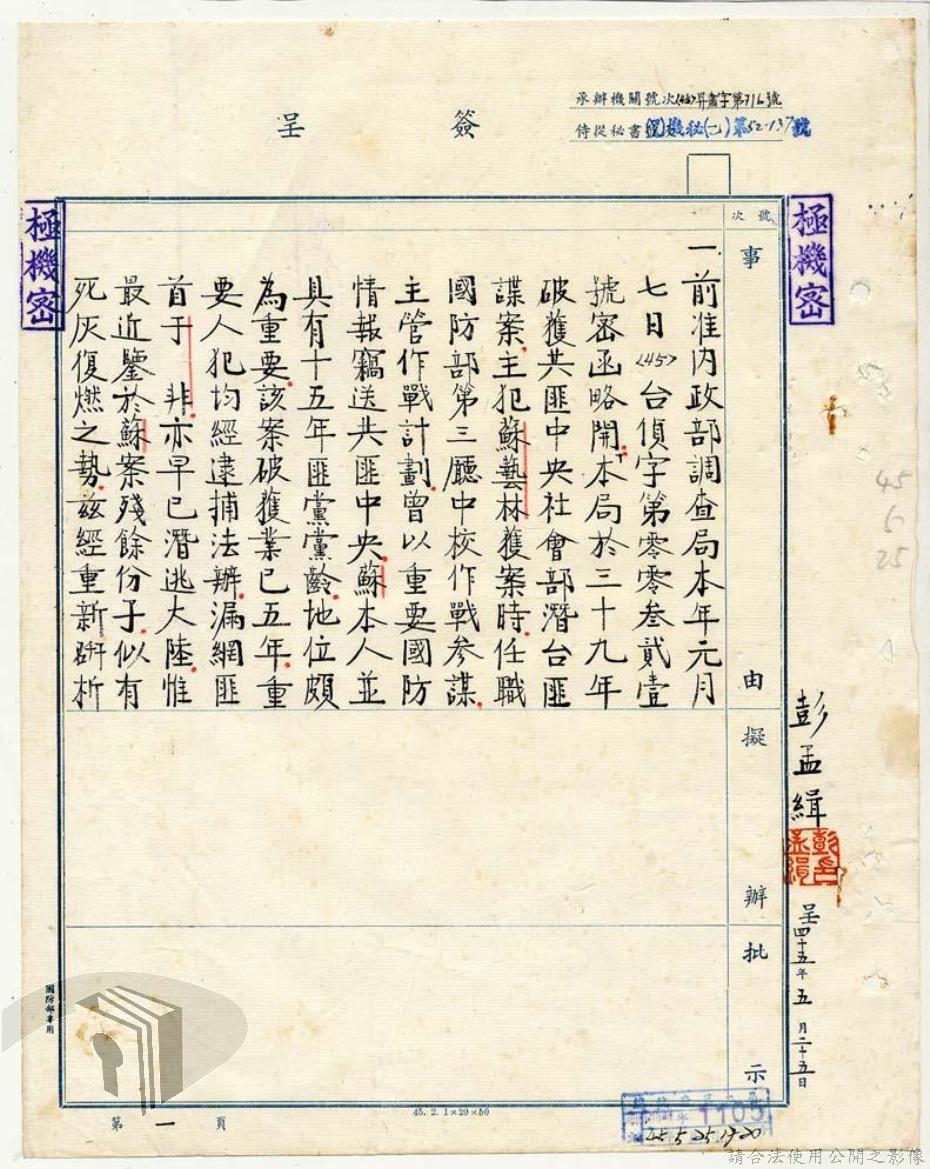 簽呈
承辦機關號次(45)丹書字第716號
侍從秘書號機秘(乙)第52-137號
極機密
極機密
號次
事由
擬辦
批示
一、前准内政部調查局本年元月
七日(45)台偵字第零零叁貳壹
號密函略開:「本局於三十九年
破獲共匪中央社會部潛台匪
諜案,主犯蘇藝林獲案時,任職
國防部第三廳中校作戰參謀,
主管作戰計劃,曾以重要國防
情報竊送共匪中央,蘇本人並
具有十五年匪黨黨齡,地位頗
為重要,該案破獲業已五年,重
要人犯均經逮捕法辦,漏網匪
首于 非,亦早已潛逃大陸,惟
最近鑒於蘇案殘餘份子,似有
死灰復燃之勢,茲經重新研析
彭孟緝
呈
四十五年五月二十五日
45
5
25
國防部專用
第一頁
45.2.1×20×50
1105
45.5.25.1920
請合法使用公開之影像